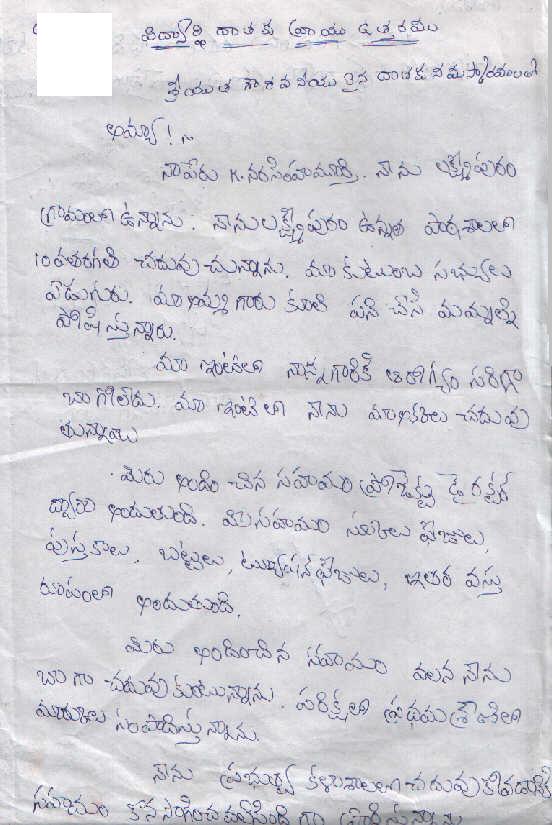 విద్యార్థి దాతకు వ్రాయు ఉత్తరములు
శ్రీయుత గౌరవనీయులైన దాతకు నమస్కారములతో
అయ్యా!
నాపేరు K. నరసింహమూర్తి. నాను లక్ష్మీపురం
గ్రామంలో ఉన్నాను. నాను లక్ష్మీపురం ఉన్నత పాఠశాలలో
10వతరగతి చదువుచున్నాను. మా కుటుంబ సభ్యులు
ఏడుగురు. మా అమ్మ గారు కూలి పని చేసి మమ్మల్ని
పోషిస్తున్నారు.
మా ఇంటిలో నాన్నగారికి ఆరోగ్యం సరిగ్గా
బాగోలేదు. మా ఇంటిలో నాను చదువు
తున్నాము
మీరు అందించిన సహాయం ప్రాజెక్టు డైరక్టర్
ద్వారా అందుతుంది. మీ సహాయం స్కూలు ఫీజులు,
పుస్తకాలు, బట్టలు, ట్యూషన్ ఫీజులు, ఇతర వస్తు
రూపంలో అందుతుంది.
మీరు అందించిన సహాయం వలన నాను
బాగా చదువుకుంటున్నాను. పరీక్షలలో ప్రథమశ్రేణిలో
మార్కులు సంపాదిస్తున్నాను.
నాను ప్రభుత్వ కళాశాలలో చదువుకోవడానికి
సహాయం కొనసాగించవలసిందిగా ప్రార్థిస్తున్నాను